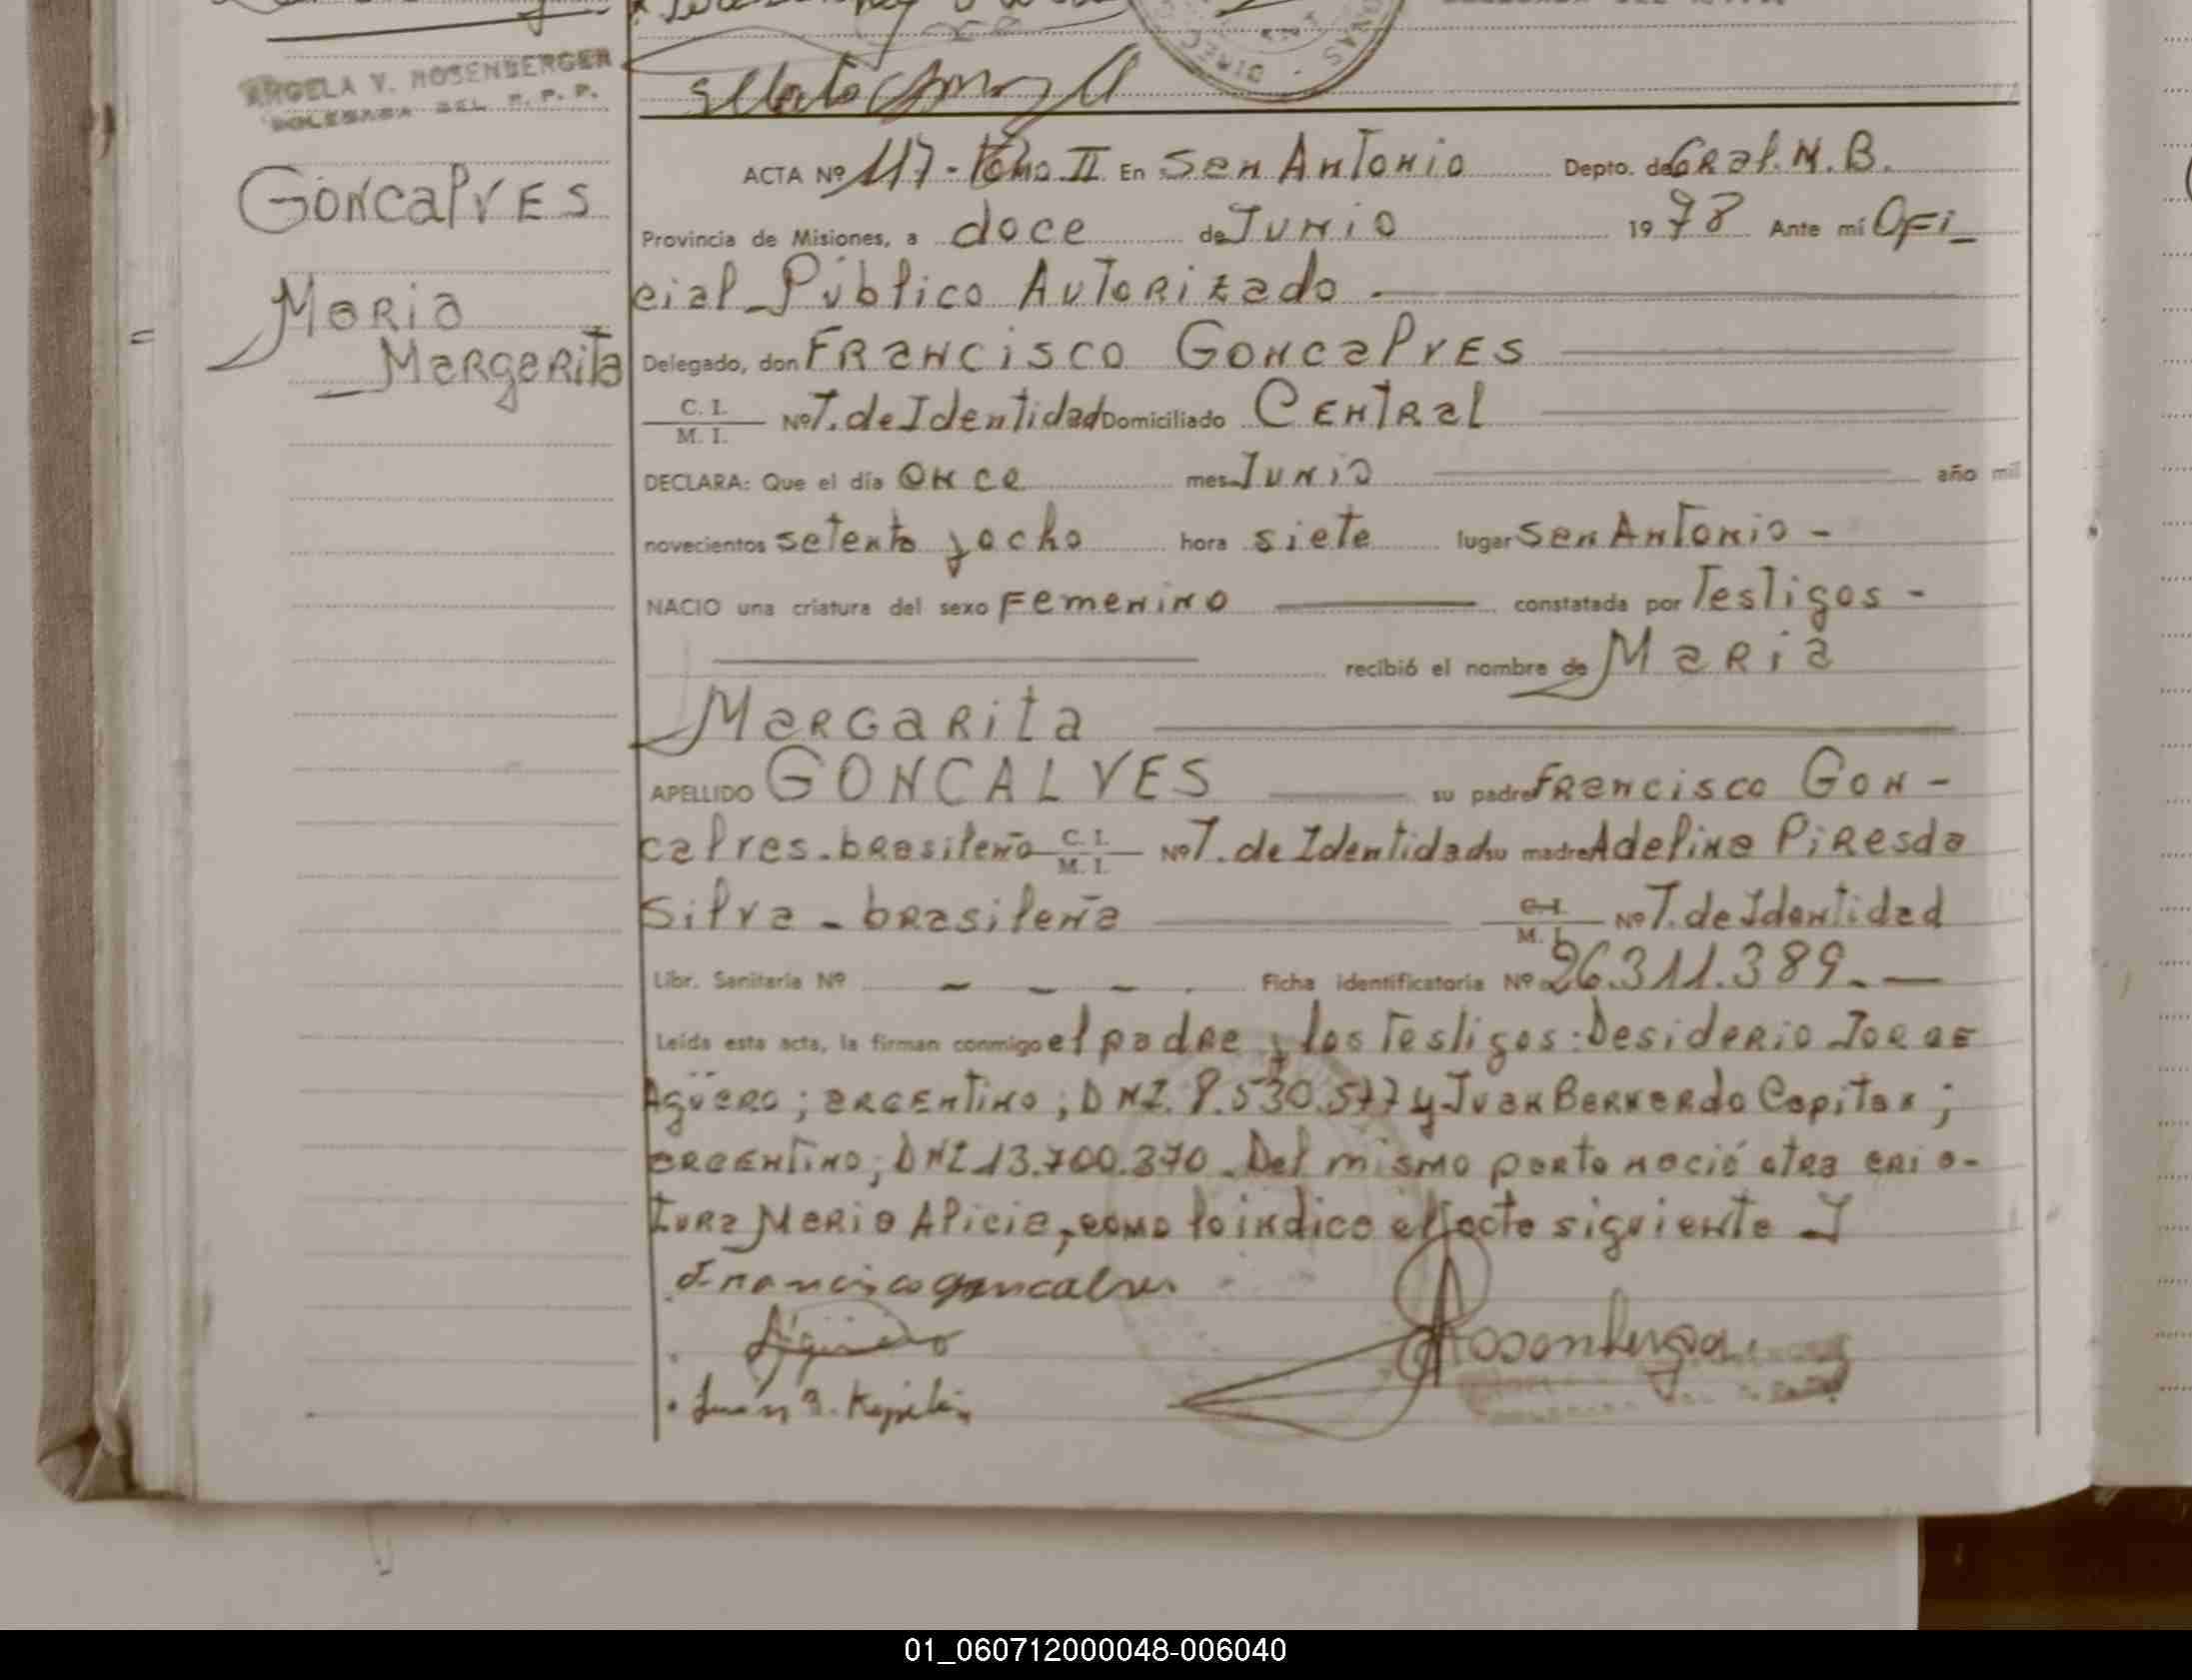 ANGELA V. ROSENBERGER
DELEGADA DEL R.P.P.
Goncalves
Maria
Margarita
ACTA Nº 117 - Tomo II En San Antonio Depto. de Gral. M. B.
Provincia de Misiones, a doce de Junio 1978 Ante mí Ofi_
cial Público Autorizado -
Delegado, don Francisco Goncalves
C. I. / M. I. Nº T. de Identidad Domiciliado Central
DECLARA: Que el día once mes Junio año mil
novecientos setenta y ocho hora siete lugar San Antonio -
NACIO una criatura del sexo Femenino constatada por Testigos -
recibió el nombre de Maria
Margarita
APELLIDO GONCALVES su padre Francisco Gon-
calves - brasileño C. I. / M. I. Nº T. de Identidad su madre Adelina Pires da
Silva - brasileña C. I. / M. I. Nº T. de Identidad
Libr. Sanitaria Nº - - - . Ficha identificatoria Nº 26.311.389. -
Leída esta acta, la firman conmigo el padre y los Testigos: Desiderio Jorge
Agüero; argentino; DNI. 8.530.577 y Juan Bernardo Capitan;
argentino; DNI 13.700.370. Del mismo parto nació otra cria-
tura Maria Alicia, como lo indica el acta siguiente
Francisco goncalves
Agüero
Juan B. Kapitan
Rosenberger
01_060712000048-006040